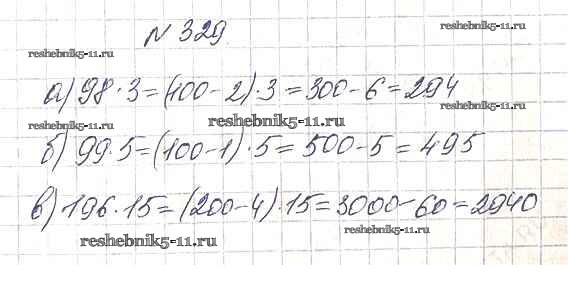 N 329.
reshebnik5-11.ru.
reshebnik5-11.ru
а) 98 · 3 = (100 - 2) · 3 = 300 - 6 = 294
reshebnik5-11.ru
reshebnik5-11.ru
б) 99 · 5 = (100 - 1) · 5 = 500 - 5 = 495
в) 196 · 15 = (200 - 4) · 15 = 3000 - 60 = 2940
reshebnik5-11.ru
reshebnik5-11.ru